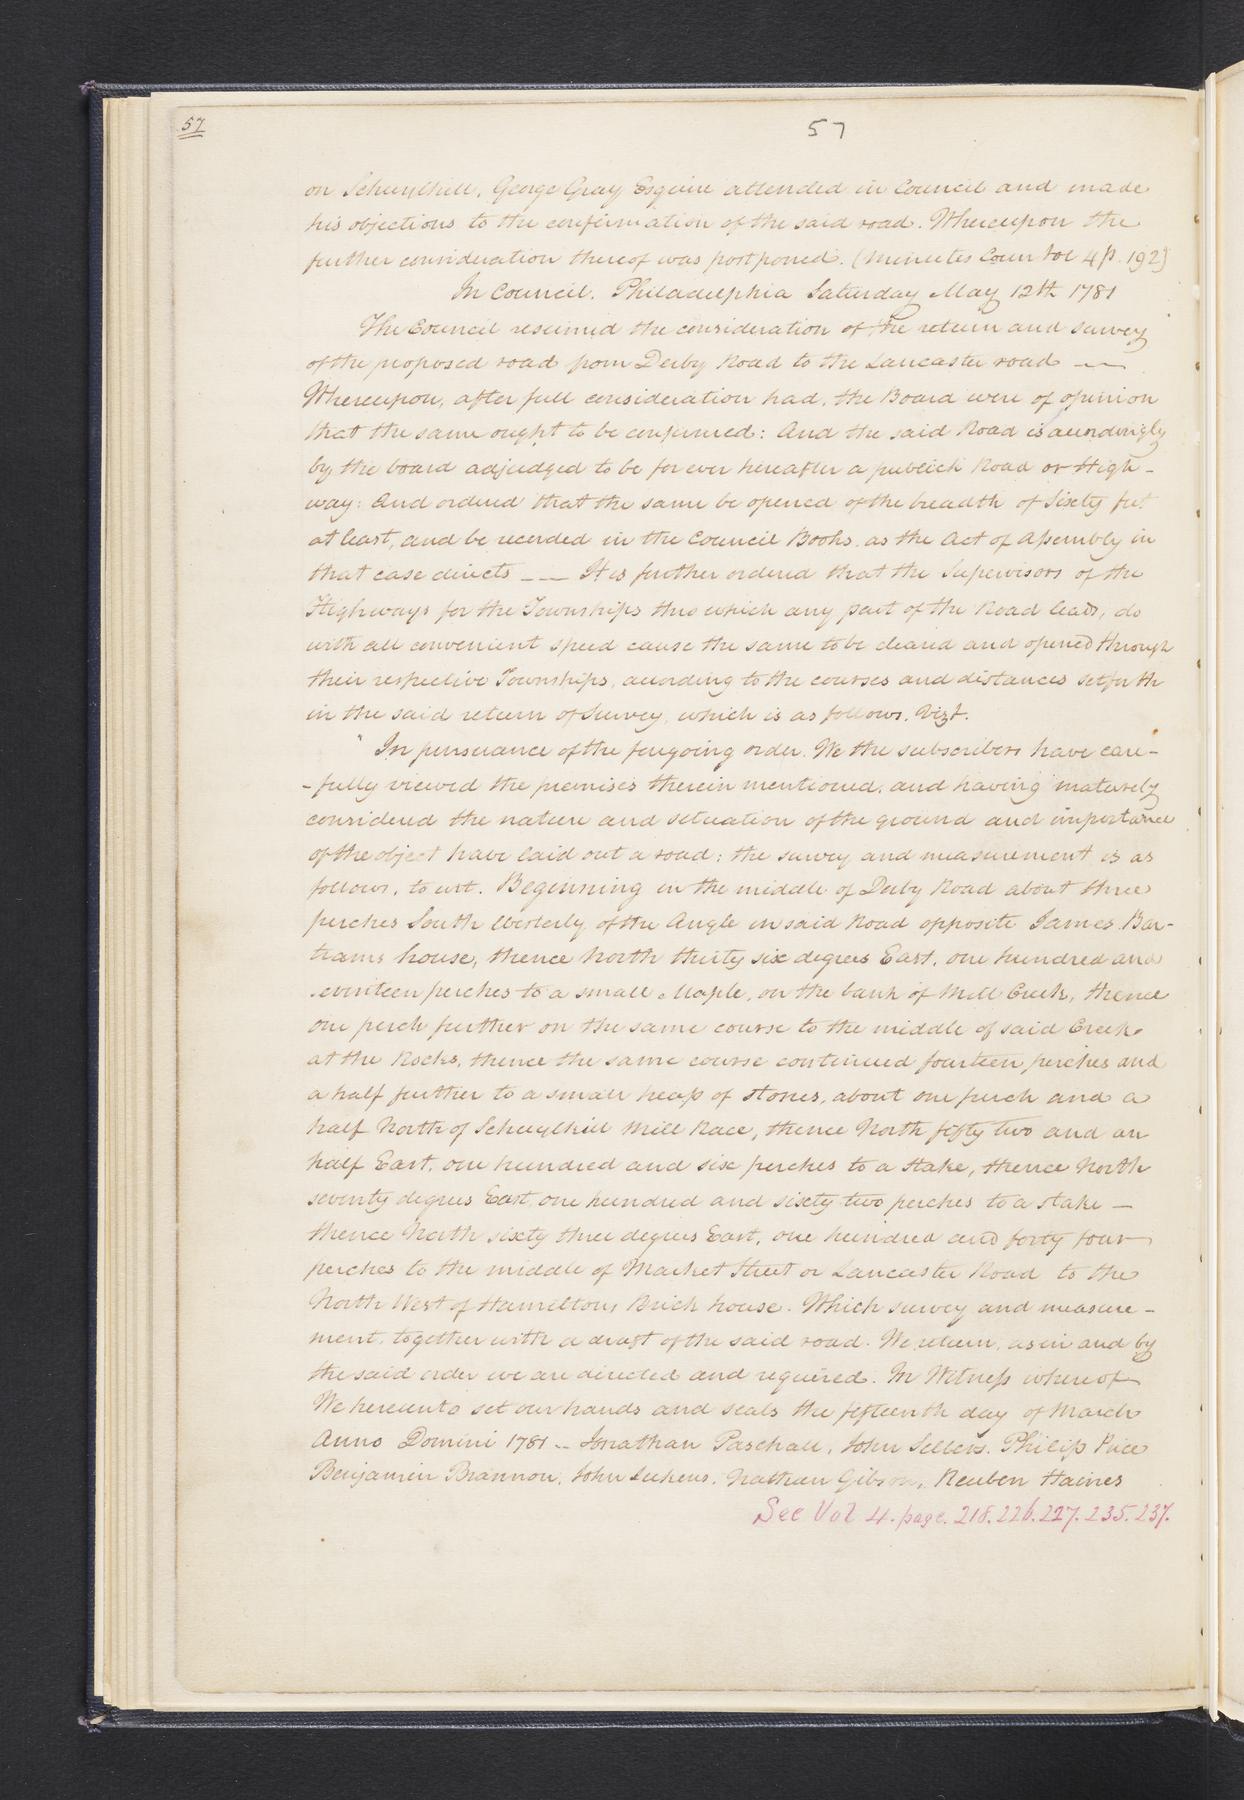 57
57
on Schuylkill, George Gray Esquire attended in Council and made
his objections to the confirmation of the said road. Whereupon the
further consideration thereof was postponed. (Minutes Coun Vol 4 p. 192)
In Council. Philadelphia Saturday May 12th 1781
The Council resumed the consideration of the return and survey
of the proposed road from Derby Road to the Lancaster road ——
Whereupon, after full consideration had, the Board were of opinion
that the same ought to be confirmed: And the said Road is accordingly
by the board adjudged to be for ever hereafter a publick Road or High-
way: And ordered that the same be opened of the breadth of Sixty feet
at least, and be recorded in the Council Books, as the Act of Assembly in
that case directs —— It is further ordered that the Supervisors of the
Highways for the Townships thro which any part of the Road leads, do
with all convenient speed cause the same to be cleared and opened through
their respective Townships, according to the courses and distances set forth
in the said return of Survey, which is as follows, Vizt.
" In pursuance of the foregoing order. We the subscribers have care-
-fully viewed the premises therein mentioned, and having maturely
considered the nature and situation of the ground and importance
of the object have laid out a road; the survey and measurement is as
follows, to wit. Beginning in the middle of Derby Road about three
perches South Westerly of the Angle in said Road opposite James Bar-
trams house, thence North thirty six degrees East, one hundred and
seventeen perches to a small Maple, on the bank of Mill Creek, thence
one perch further on the same course to the middle of said Creek
at the Rocks, thence the same course continued fourteen perches and
a half further to a small heap of stones, about one perch and a
half North of Schuylkill Mill Race, thence North fifty two and an
half East, one hundred and six perches to a stake, thence North
seventy degrees East, one hundred and sixty two perches to a stake —
thence North sixty three degrees East, one hundred and forty four
perches to the middle of Market Street or Lancaster Road to the
North West of Hamiltons Brick house. Which survey and measure-
ment, together with a draft of the said road. We return, as in and by
the said order we are directed and required. In Witness whereof
We hereunto set our hands and seals the fifteenth day of March
Anno Domini 1781 -- Jonathan Paschall, John Sellers, Philip Price
Benjamin Brannon, John Lukens, Nathan Gibson, Reuben Haines
See Vol 4. page. 218. 226. 227. 235. 237.